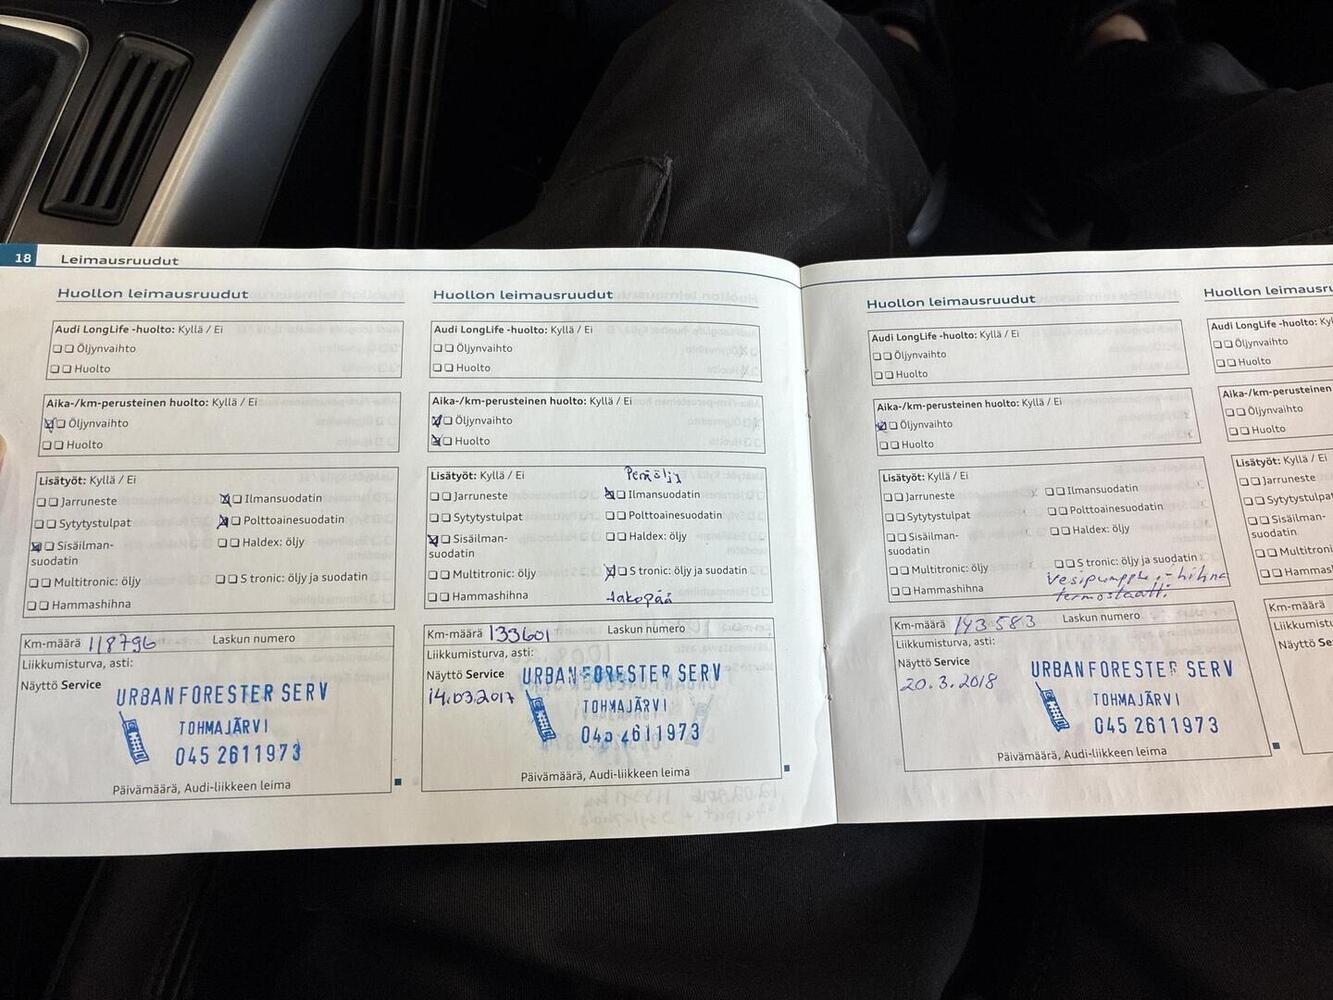 18 Leimausruudut
Huollon leimausruudut
Audi LongLife -huolto: Kyllä / Ei
Öljynvaihto
Huolto
Aika-/km-perusteinen huolto: Kyllä / Ei
Öljynvaihto
Huolto
Lisätyöt: Kyllä / Ei
Jarruneste
Ilmansuodatin
Sytytystulpat
Polttoainesuodatin
Sisäilman-
suodatin
Haldex: öljy
Multitronic: öljy
S tronic: öljy ja suodatin
Hammashihna
Km-määrä 118796 Laskun numero
Liikkumisturva, asti:
Näyttö Service
URBAN FORESTER SERV
TOHMAJÄRVI
045 2611973
Päivämäärä, Audi-liikkeen leima
Huollon leimausruudut
Audi LongLife -huolto: Kyllä / Ei
Öljynvaihto
Huolto
Aika-/km-perusteinen huolto: Kyllä / Ei
Öljynvaihto
Huolto
Lisätyöt: Kyllä / Ei
Jarruneste
Ilmansuodatin
Sytytystulpat
Polttoainesuodatin
Sisäilman-
suodatin
Haldex: öljy
Multitronic: öljy
S tronic: öljy ja suodatin
Hammashihna
takopää
Km-määrä 133601 Laskun numero
Liikkumisturva, asti:
Näyttö Service
14.03.2017
URBAN FORESTER SERV
TOHMAJÄRVI
045 2611973
Päivämäärä, Audi-liikkeen leima
Huollon leimausruudut
Audi LongLife -huolto: Kyllä / Ei
Öljynvaihto
Huolto
Aika-/km-perusteinen huolto: Kyllä / Ei
Öljynvaihto
Huolto
Lisätyöt: Kyllä / Ei
Jarruneste
Ilmansuodatin
Sytytystulpat
Polttoainesuodatin
Sisäilman-
suodatin
Haldex: öljy
Multitronic: öljy
S tronic: öljy ja suodatin
Hammashihna
Vesipumppu + hihna
termostaatti
Km-määrä 143583 Laskun numero
Liikkumisturva, asti:
Näyttö Service
20.3.2018
URBAN FORESTER SERV
TOHMAJÄRVI
045 2611973
Päivämäärä, Audi-liikkeen leima
Huollon leimausru
Audi LongLife -huolto: Ky
Öljynvaihto
Huolto
Aika-/km-perusteinen
Öljynvaihto
Huolto
Lisätyöt: Kyllä / Ei
Jarruneste
Sytytystulpat
Sisäilman-
suodatin
Multitroni
Hammash
Km-määrä
Liikkumistu
Näyttö Se